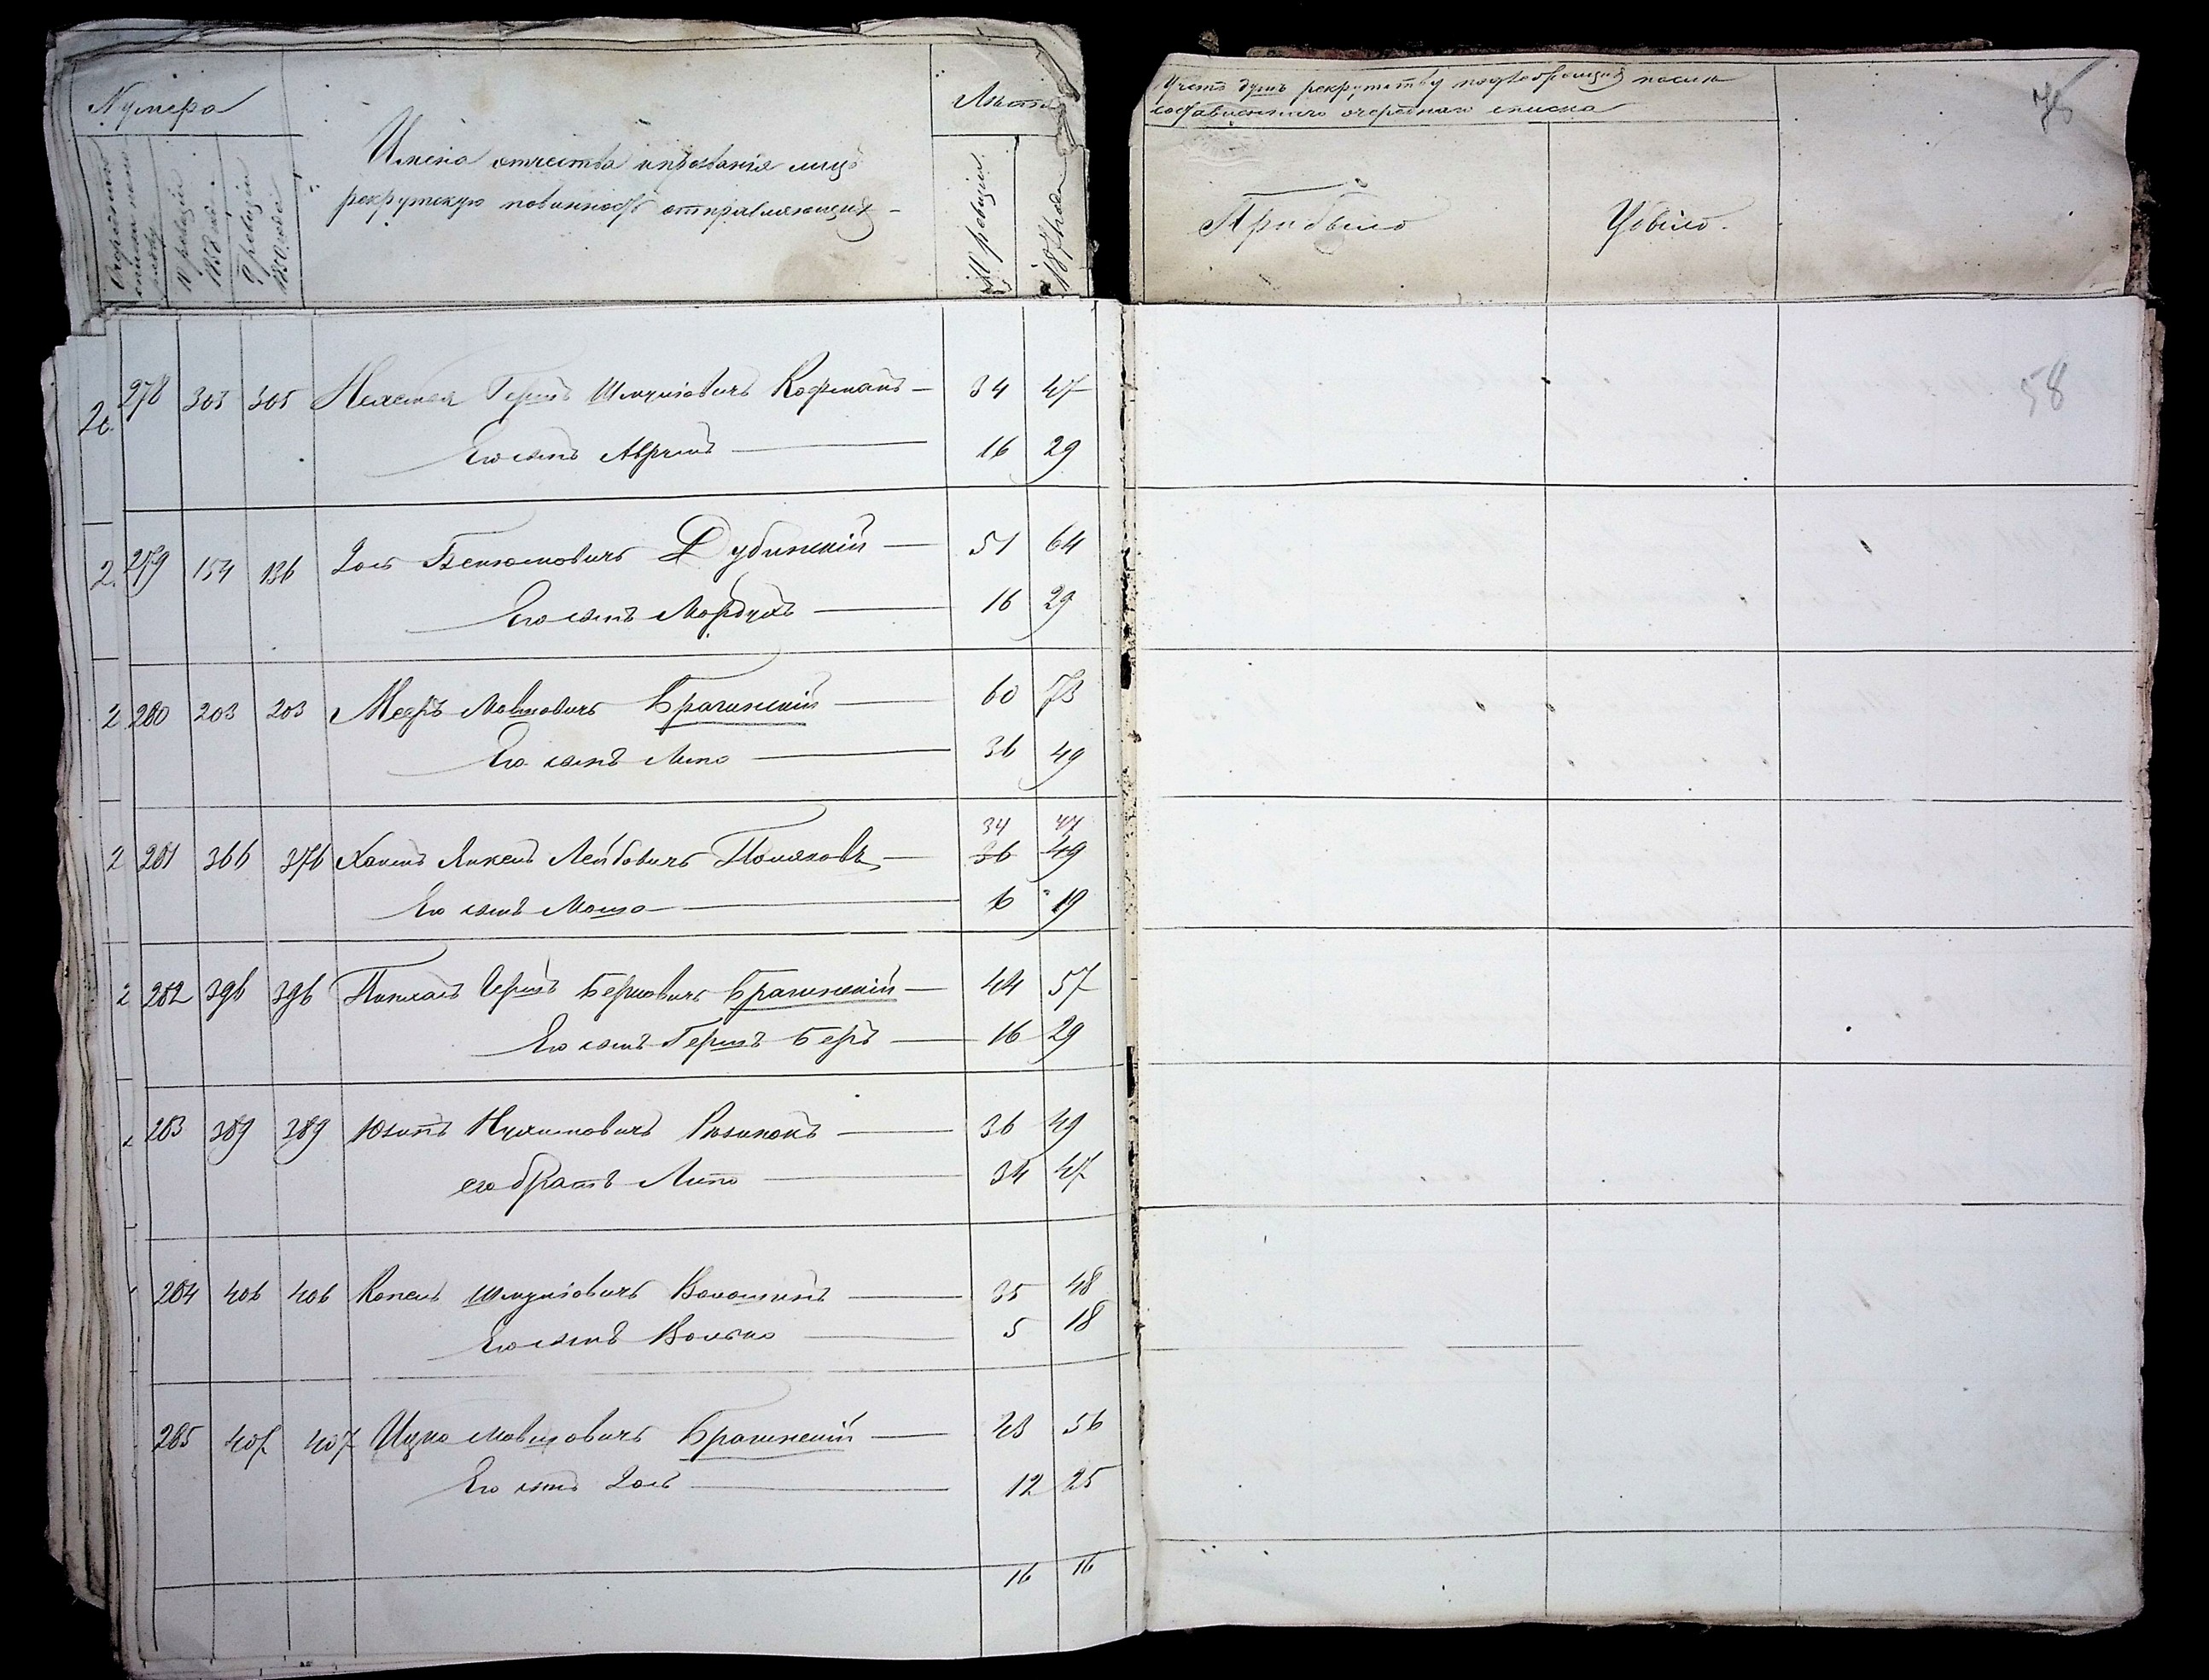 Нумера
Очередного
10 ревизіи 1858 года
9 ревизіи 1850 года
Имена отчества и прозванія лицъ
рекрутскую повинность отправляющихъ
Лѣта
ревизіи
1871 года
Учетъ душъ рекрутству подлежащихъ послѣ
составленнаго очереднаго списка
Прибыло
Убыло.
75
58
278 303 305 Гершъ Шмуиловичъ Кофманъ 34 47
Его сынъ Абрамъ 16 29
279 154 136 Іось Бенюмовичъ Дубинскій 51 64
Его сынъ Мордухъ 16 29
280 203 203 Мееръ Мовшовичъ Брагинскій 60 73
Его сынъ Липа 36 49
34 47
281 366 376 Хаимъ Янкель Лейбовичъ Поляковъ 36 49
Его сынъ Мошо 6 19
282 396 396 Герцъ Берковичъ Брагинскій 44 57
Его сынъ Гершъ Беръ 16 29
283 389 389 Юзипъ Нухимовичъ 36 49
его братъ Липо 34 47
284 406 406 Копель Шмуиловичъ Волошинъ 35 48
Его сынъ Волько 5 18
285 407 407 Ицко Мовшовичъ Брагинскій 43 56
Его сынъ Іось 12 25
16 16